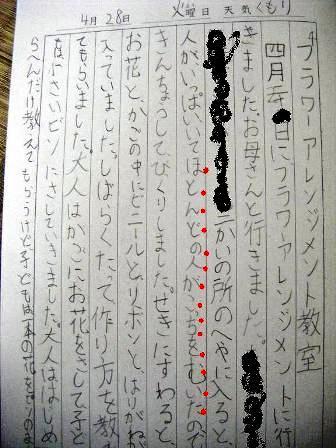 4月 28日 火曜日 天気 くもり
フラワーアレンジメント教室
四月 日にフラワーアレンジメントに行
きました。お母さんと行きました。
二かいの所のへやに入ると
人がいっぱいいてほとんどの人がこっちをむいたので
きんちょうしてびくりしました。せきにすわると
お花と、かごの中にビニールと、リボンと、はりがね
入っていました。しばらくたって作り方を教
てもらいました。大人はかごにお花をさして子ど
にさいビンにさしていきました。大人ははじめ
らへんだけ教えてもらうけど子どもは 本の花を